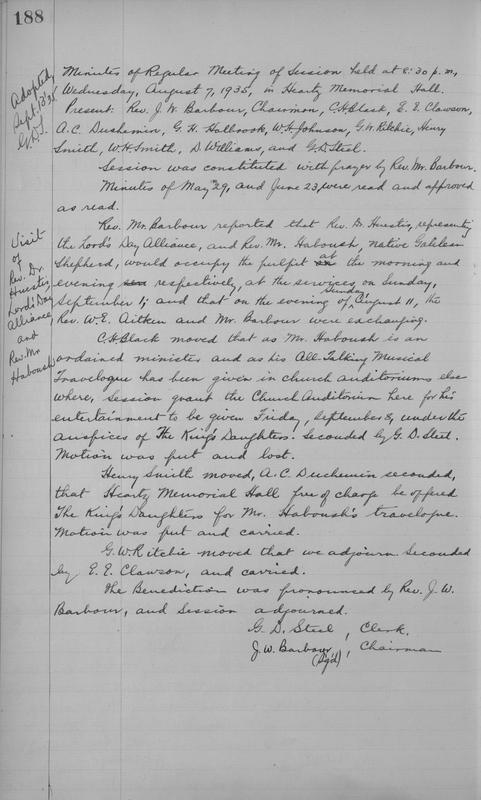 188
Adopted,
Sept. 13 '35
G.D.S.
Minutes of Regular Meeting of Session held at 8:30 p.m,
Wednesday, August 7, 1935, in Heartz Memorial Hall.
Present: Rev. J. W. Barbour, Chairman, C.H. Black, E. E. Clawson,
A.C. Duchemin, G. H. Holbrook, W.H. Johnson, G.W. Ritchie, Henry
Smith, W.H. Smith, D. Williams, and G.D. Steel.
Session was constituted with prayer by Rev. Mr. Barbour.
Minutes of May 29, and June 23, were read and approved
as read.
Visit
of
Rev. Dr.
Huestis,
Lord's Day
Alliance,
and
Rev. Mr.
Haboush
Rev. Mr. Barbour reported that Rev. Dr. Huestis, representing
the Lord's Day Alliance, and Rev. Mr. Haboush, native Galilean
Shepherd, would occupy the pulpit at the morning and
evening respectively, at the services on Sunday,
September 1; and that on the evening of Sunday August 11, the
Rev. W.E. Aitken and Mr. Barbour were exchanging.
C.H. Black moved that as Mr. Haboush is an
ordained minister and as his All-Talking Musical
Travelogue has been given in church auditoriums else
where, Session grant the Church Auditorium here for his
entertainment to be given Friday, September 6, under the
auspices of The King's Daughters. Seconded by G. D. Steel.
Motion was put and lost.
Henry Smith moved, A.C. Duchemin seconded,
that Heartz Memorial Hall free of charge be offered
The King's Daughters for Mr. Haboush's travelogue.
Motion was put and carried.
G.W. Ritchie moved that we adjourn. Seconded
by E. E. Clawson, and carried.
The Benediction was pronounced by Rev. J. W.
Barbour, and Session adjourned.
G. D. Steel, Clerk.
J. W. Barbour, Chairman
(Sg'd)